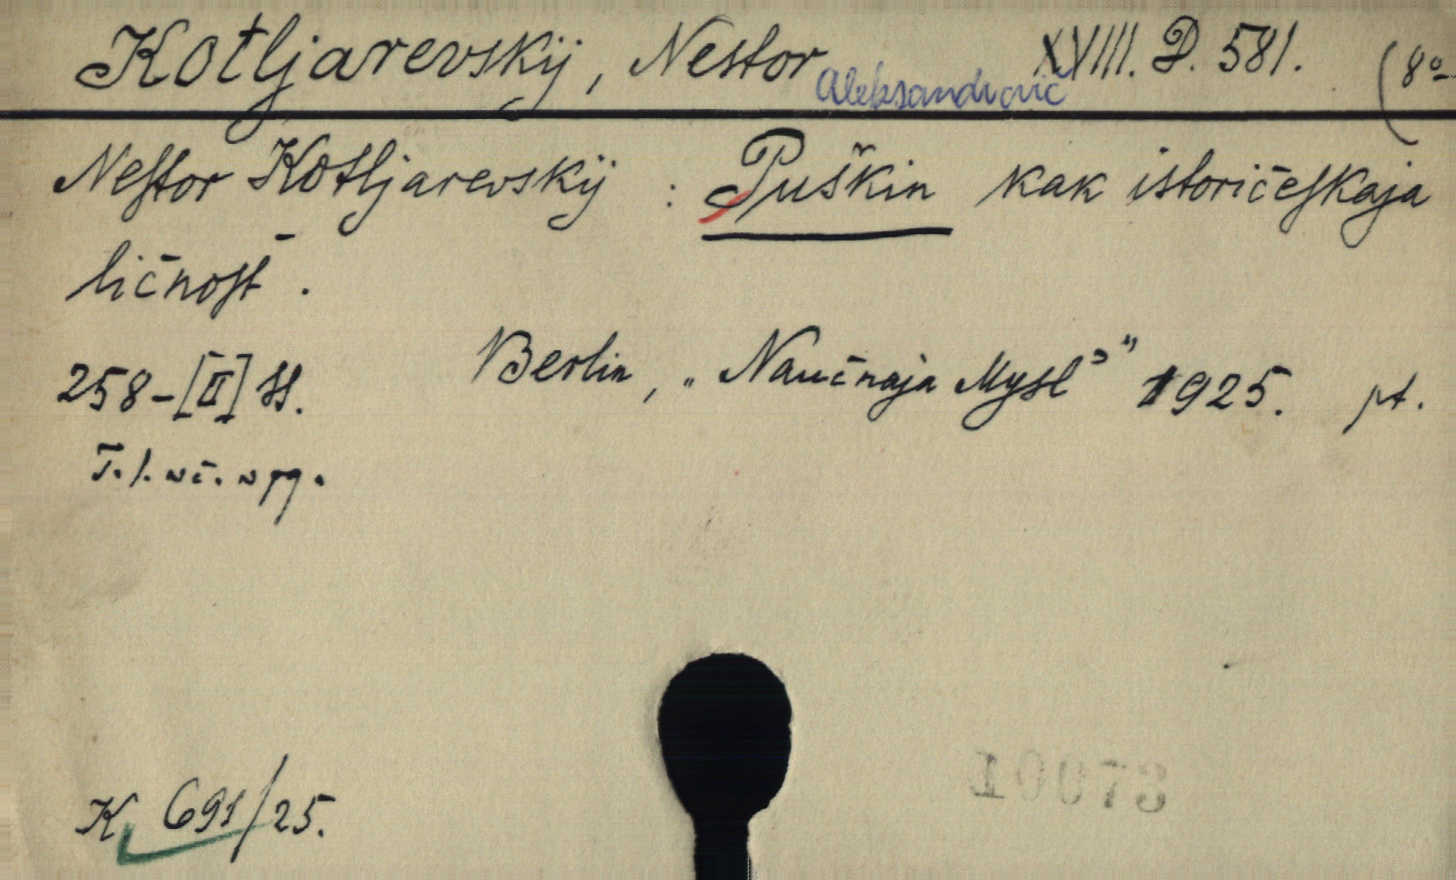 Kotljarevskij, Nestor Aleksandrovič XVIII. D. 581. (8º
Nestor Kotljarevskij : Puškin kak istoričeskaja
ličnost̄ .
258-[II] SS. Berlin, „Naučnaja Mysl'" 1925. pt.
T. l. nč. npg.
K 691/25.